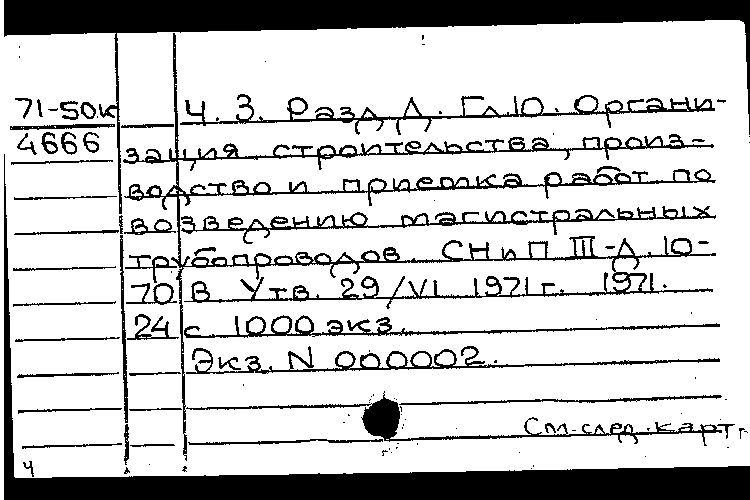 71-50к Ч. 3. Разд Д. Гл.10. Органи-
4666 зация строительства, произ-
водство и приемка работ по
возведению магистральных
трубопроводов. СНиП III-Д. 10-
70 В. Утв. 29/VI 1971 г. 1971.
24 с 1000 экз.
Экз. N 000002.
См. след. карт
ч